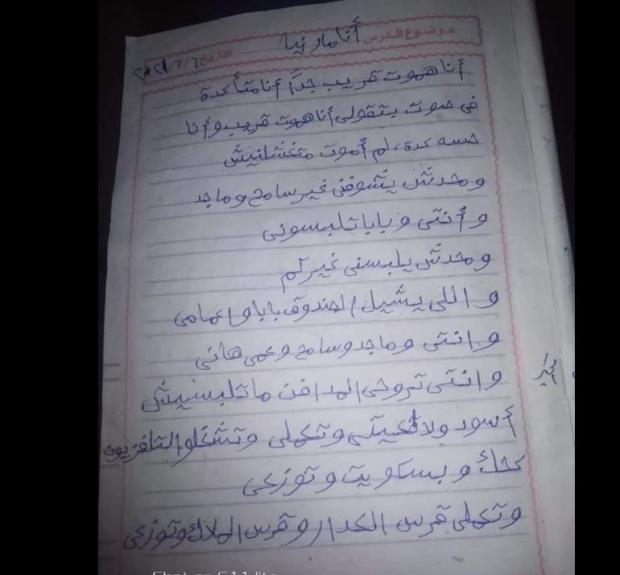 موضوع الدرس أنا مارينا
التاريخ ٢٠٢١/٦/٦
أنا هموت قريب جداً أنا متأكدة
في صوت بتقولى أنا هموت قريب وأنا
حسه كدة، لم أموت متغسلنيش
ومحدش يشوفنى غير سامح وماجد
وأنتى وبابا تلبسونى
ومحدش يلبسنى غيركم
واللى يشيل الصندوق بابا واعمامى
وانتى وماجد وسامح وعمى هانى
وانتى تروحى المدافن ماتلبسيش
أسود ولا تعيطى وتعملى وتشغلو التلفزيون
كحك وبسكويت وتوزعى
وتعملى قرس الكدار وقرس الملاك وتوزعى